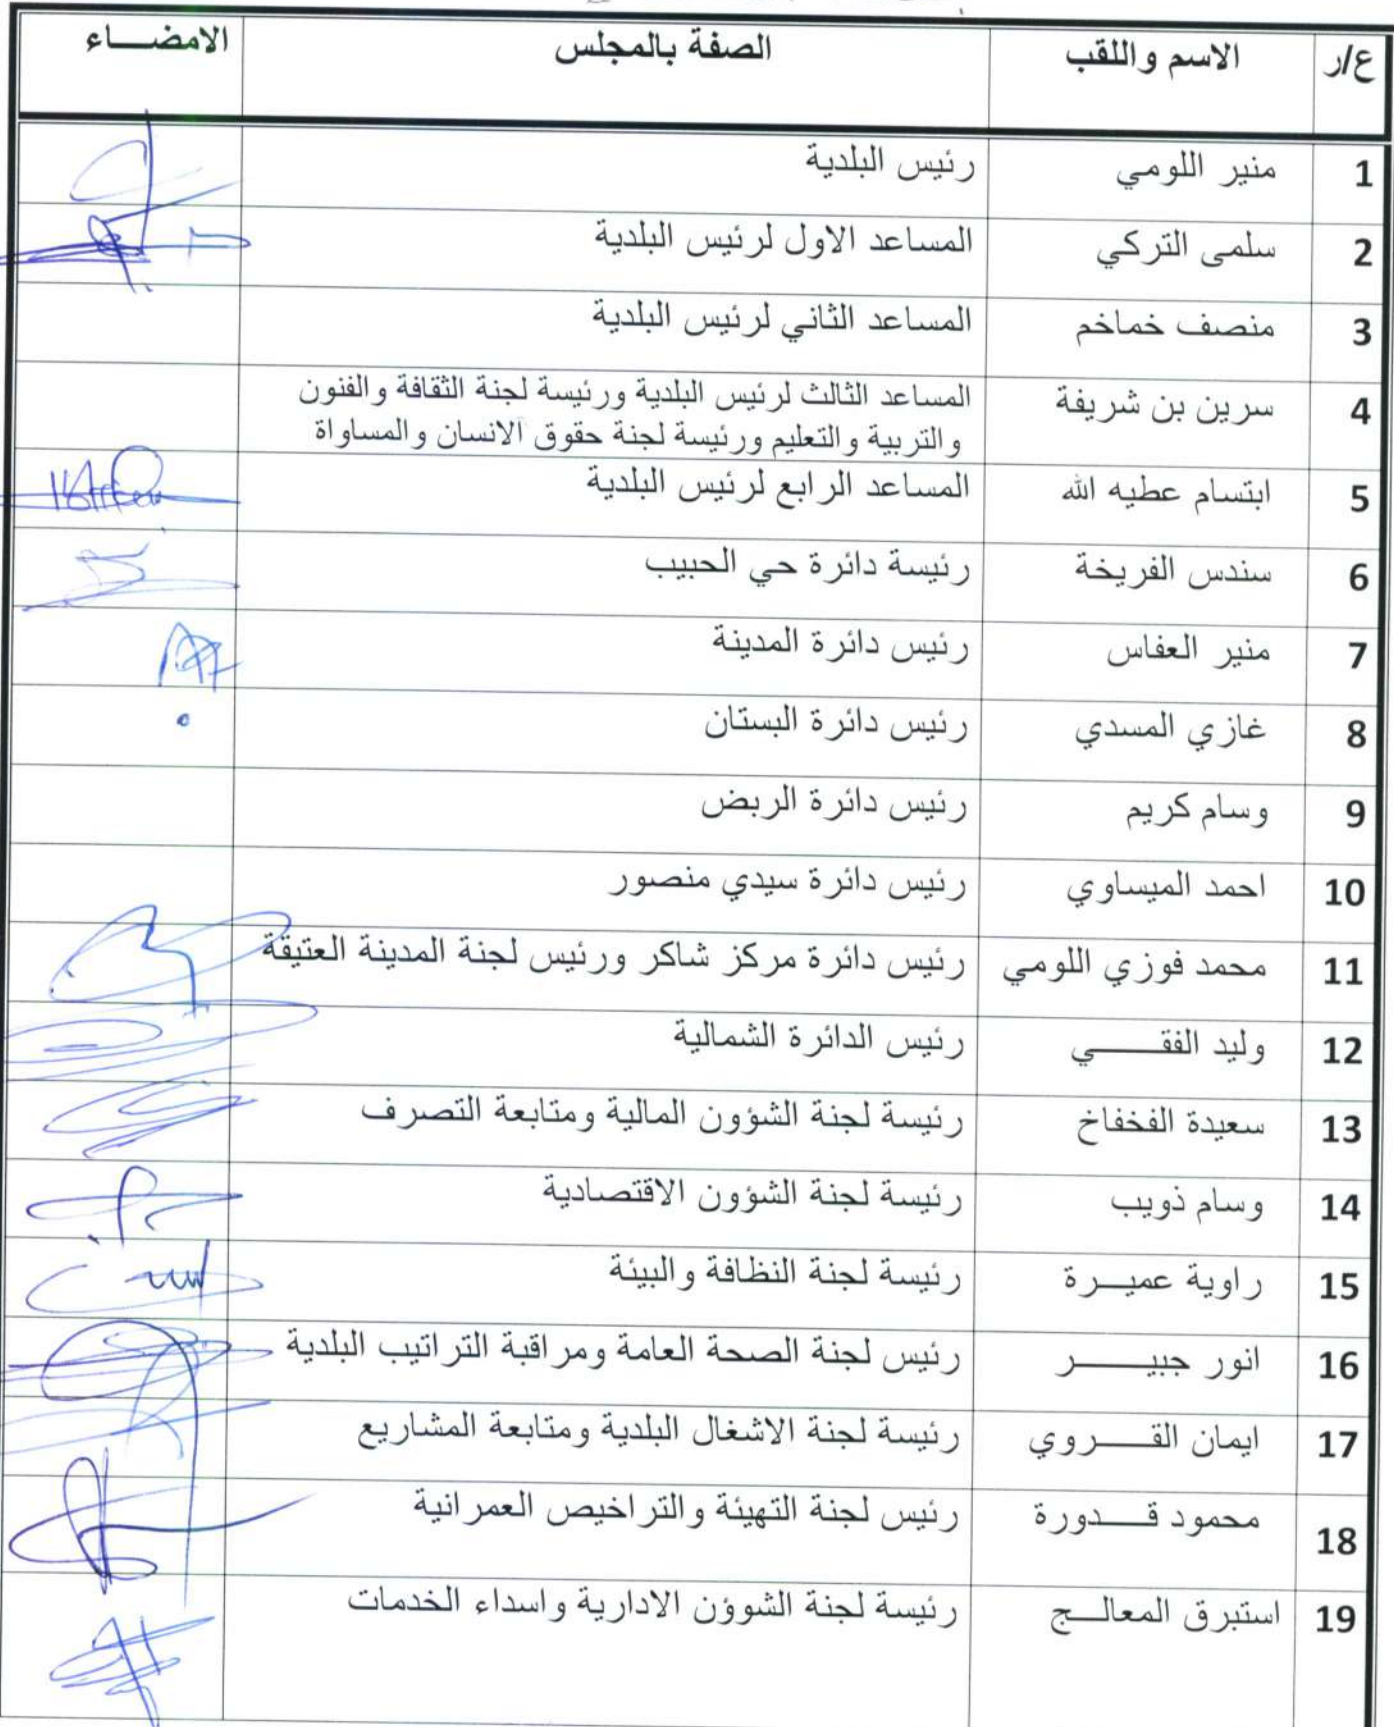 ع/ر الاسم واللقب الصفة بالمجلس الامضـــاء
1 منير اللومي رئيس البلدية
2 سلمى التركي المساعد الاول لرئيس البلدية
3 منصف خماخم المساعد الثاني لرئيس البلدية
4 سرين بن شريفة المساعد الثالث لرئيس البلدية ورئيسة لجنة الثقافة والفنون
والتربية والتعليم ورئيسة لجنة حقوق الانسان والمساواة
5 ابتسام عطيه الله المساعد الرابع لرئيس البلدية
6 سندس الفريخة رئيسة دائرة حي الحبيب
7 منير العفاس رئيس دائرة المدينة
8 غازي المسدي رئيس دائرة البستان
9 وسام كريم رئيس دائرة الربض
10 احمد الميساوي رئيس دائرة سيدي منصور
11 محمد فوزي اللومي رئيس دائرة مركز شاكر ورئيس لجنة المدينة العتيقة
12 وليد الفقـــــي رئيس الدائرة الشمالية
13 سعيدة الفخفاخ رئيسة لجنة الشؤون المالية ومتابعة التصرف
14 وسام ذويب رئيسة لجنة الشؤون الاقتصادية
15 راوية عميــرة رئيسة لجنة النظافة والبيئة
16 انور جبيـــــر رئيس لجنة الصحة العامة ومراقبة التراتيب البلدية
17 ايمان القــــروي رئيسة لجنة الاشغال البلدية ومتابعة المشاريع
18 محمود قــــدورة رئيس لجنة التهيئة والتراخيص العمرانية
19 استبرق المعالــج رئيسة لجنة الشوؤن الادارية واسداء الخدمات